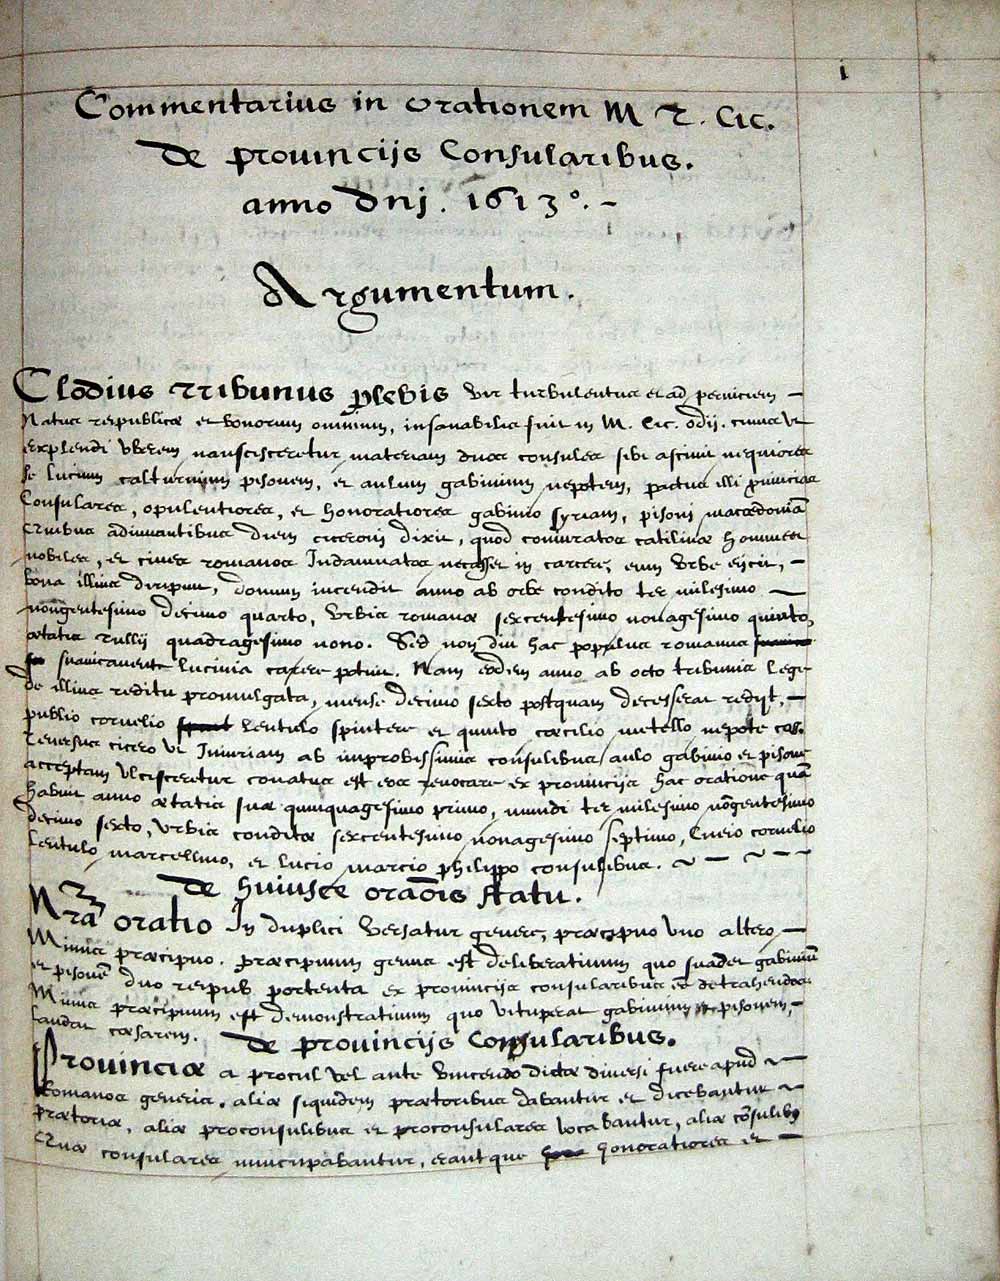 1
Commentarius in orationem M T. Cic.
de prouincijs Consularibus.
anno dnj. 1613°.
Argumentum.
Clodius tribunus plebis vir turbulentus et ad perniciem
Natus reipublicæ et bonorum omnium, insanabilis fuit in M. Cic. odij. cuius ut
explendi uberem nanscisceretur materiam duos consules sibi asciuit nequiores
se lucium calfurnium pisonem, et aulum gabinium nepotem, pactus illi prouincias
Consulares, opulentiores, et honoratiores gabinio syriam, pisoni macedoniã
Quibus adiuuantibus diem ciceroni dixit, quod coniuratos catilinæ homines
nobiles, et ciues romanos Indamnatos necasset in carcere, eum Vrbe eijcit,
bona illius diripuit, domum incendit anno ab orbe condito ter milesimo
nongentesimo decimo quarto, Vrbis romanæ sexcentesimo nonagesimo quinto,
ætatis tullij quadragesimo nono. Sed non diu hac populus romanus
suauicamente lucinia carere potuit. Nam eodem anno ab octo tribunis lege
de illius reditu promulgata, mense decimo sexto postquam decesserat redijt,
publio cornelio lentulo spintere et quinto cæcilio metello nepote cos.
reuersus cicero ut Iniuriam ab improbissimis consulibus aulo gabinio et pisone
acceptam ulcisceretur conatus est eos reuocare ex prouincijs hac oratione quã
habuit anno ætatis suæ quinquagesimo primo, mundi ter milesimo nõgentesimo
decimo sexto, Vrbis conditæ sexcentesimo nonagesimo septimo, Cneio cornelio
lentulo marcellino, et lucio marcio philippo consulibus.
de huiusce oraõis statu.
Nrã oratio In duplici Versatur genere, præcipuo uno altero
Minus præcipuo. præcipuum genus est deliberatiuum quo suadet gabiniũ
et pisonẽ duo reipub portenta ex prouincijs consularibus et detrahendos
Minus præcipuum est demonstratiuum quo uituperat gabinium et pisonem,
laudat cæsarem.
de prouincijs Consularibus.
Prouinciæ a procul vel ante vincendo dictæ diuersi fuere apud
Romanos generis. aliæ siquidem prætoribus dabantur et dicebantur
prætoriæ, aliæ proconsulibus et proconsulares vocabantur, aliæ cõsulibus
Quæ consulares nuncupabantur, erantque honoratiores et